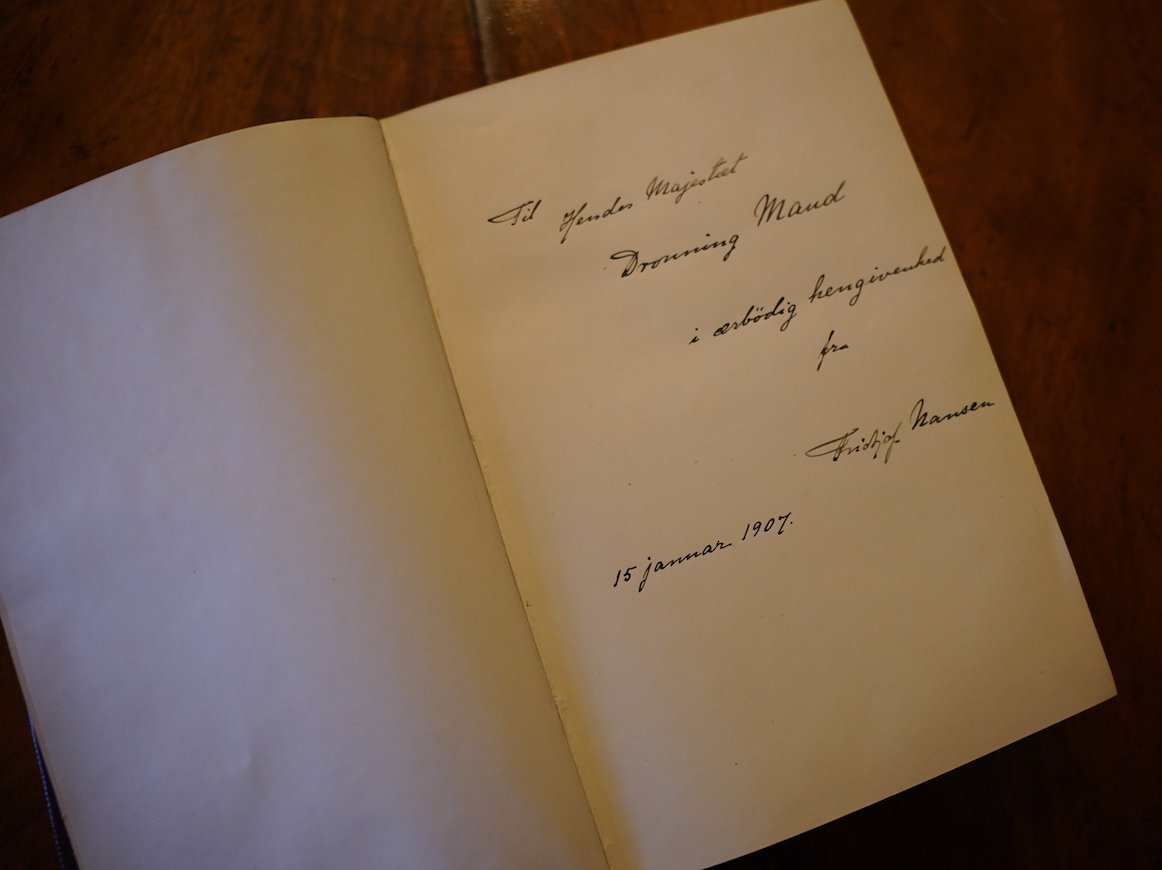 Til Hendes Majestæt
Dronning Maud
i ærbödig hengivenhed
fra
Fridtjof Nansen
15 januar 1907.